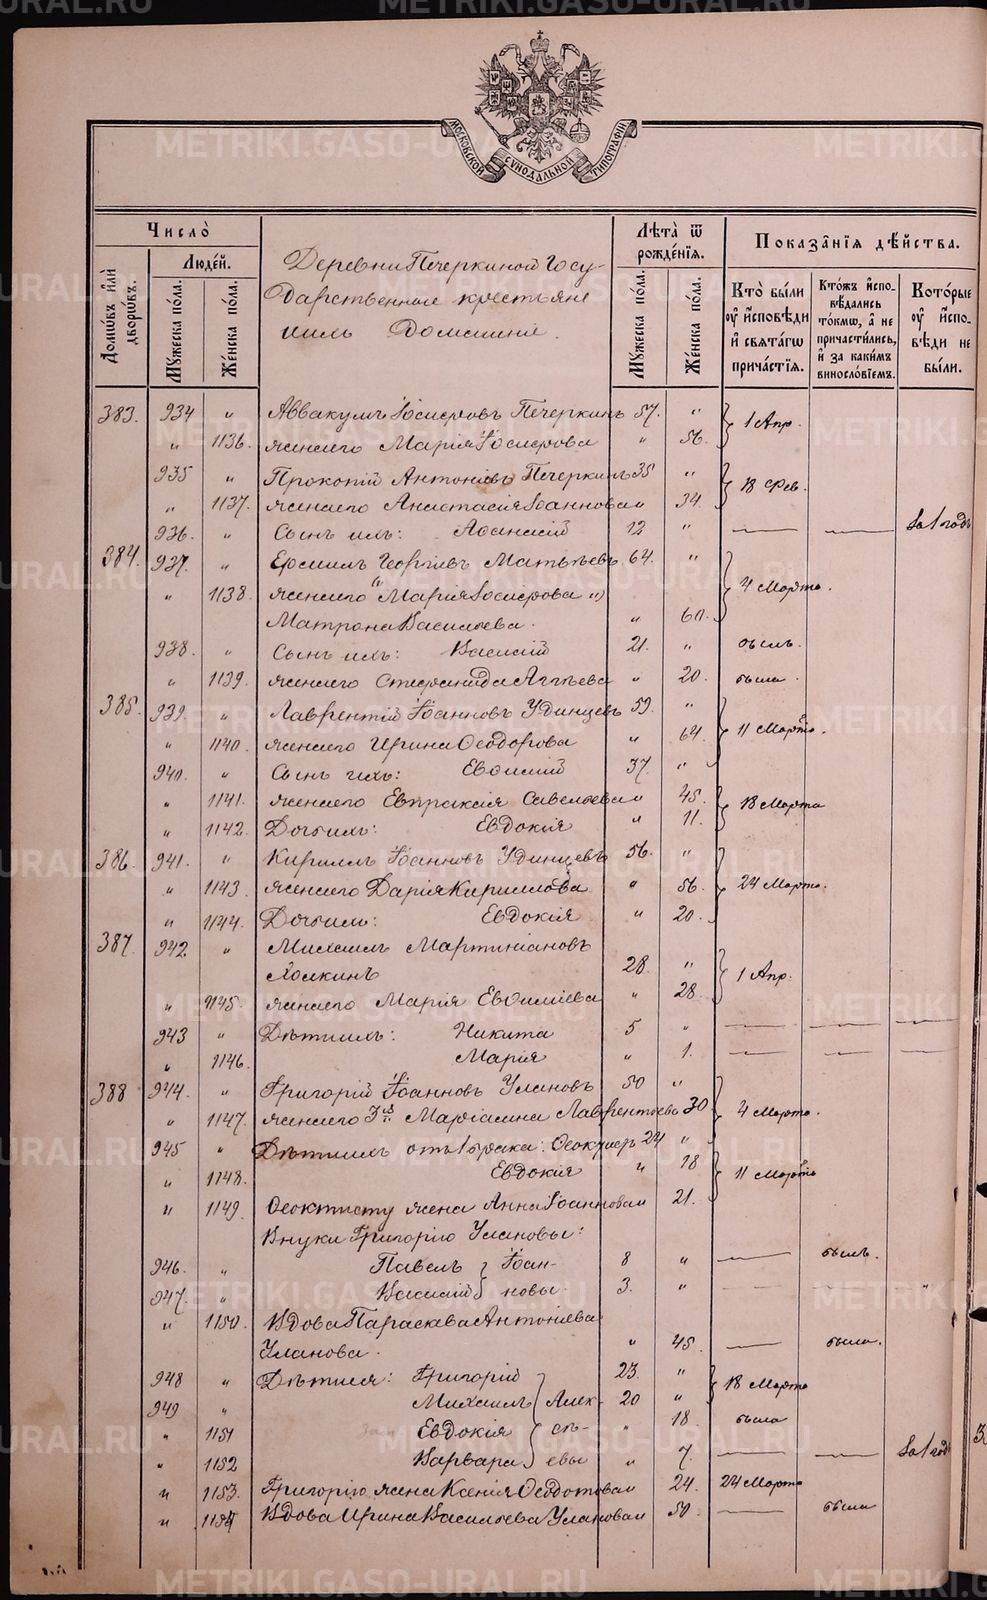 METRIKI.GASO-URAL.RU
МОСКОВСКОЙ СѴНОДАЛЬНОЙ ТИПОГРАФІИ
Число̀
Людéй.
Домѡвъ и҆лѝ дворѡвъ.
Мꙋ́жеска по́ла.
Же́нска по́ла.
Деревни Печеркиной Госу-
дарственные крестьяне
ихъ Домашніе.
Лѣ́та ѿ рожде́нїѧ.
Мꙋ́жеска по́ла.
Же́нска по́ла.
Показа̑нїѧ дѣ́йства.
Кто̀ бы́ли ᲂу҆ и҆сповѣ́ди и҆ свѧта́гѡ прича́стїѧ.
Кто́жъ и҆спо-вѣ́дались то́кмѡ, а҆ не причасти́лись, и҆ за каки́мъ винослѡ́вїемъ.
Кото́рые ᲂу҆ и҆спо-вѣ́ди не бы́ли.
383. 934 " Аввакумъ Іосифовъ Печеркинъ 57. " 1 Апр.
" 1136. жена его Марія Іосифова " 56.
935 " Прокопій Антоніевъ Печеркинъ 35 " 18 Фев.
" 1137. жена его Анастасія Іоаннова " 34.
936. " Сынъ ихъ: Аѳанасій 12 " — — За 1 годъ
384. 937. " Ермилъ Георгіевъ Матвѣевъ 64. " 4 Марта.
" 1138. жена его "Марія Іосифова"
Матрона Васильева. " 60.
938. " Сынъ ихъ: Василій 21. " былъ.
" 1139. жена его Стефанида Аггѣева " 20. была.
385. 939. " Лаврентій Іоанновъ Удинцевъ 59. " 11 Марта.
" 1140. жена его Ирина Ѳеодорова " 64.
940. " Сынъ ихъ: Евѳимій 37. "
" 1141. жена его Евпраксія Савельева " 45. 18 Марта
" 1142. Дочь ихъ: Евдокія " 11.
386. 941. " Кириллъ Іоанновъ Удинцевъ 56. " 24 Марта.
" 1143. жена его Дарія Кириллова " 56.
" 1144. Дочь ихъ: Евдокія " 20.
387. 942 " Михаилъ Мартиніановъ
28. " 1 Апр.
" 1145. жена его Марія Евѳиміева " 28.
943 " Дѣти ихъ: Никита 5 " — — —
" 1146. Марія " 1. — — —
388 944. " Григорій Іоанновъ Улановъ 50 " 4 Марта.
" 1147. жена его Маріамна Лаврентьева 30
945 " Дѣти ихъ отъ 1 брака: 24 " 11 Марта
" 1148. Евдокія " 18
" 1149. Ѳеоктисту жена Анна Іоаннова " 21.
Внуки Григорію Улановы:
946. " Павелъ } Іоан- 8 " — былъ.
947. " Василій } новы 3. " — — "
" 1150. Вдова Параскева Антоніева
Уланова. " 45. — была.
948 " Дѣти ея: Григорій 23. " 18 Марта
949 " Михаилъ } Алек- 20 "
" 1151 Евдокія } сѣ- " 18. была
" 1152 Варвара } евы " 7. — — За 1 годъ
" 1153. Григорію жена Ксенія Ѳеодотова " 24. 24 Марта
" 1154 Вдова Ирина Васильева Уланова " 50. — была